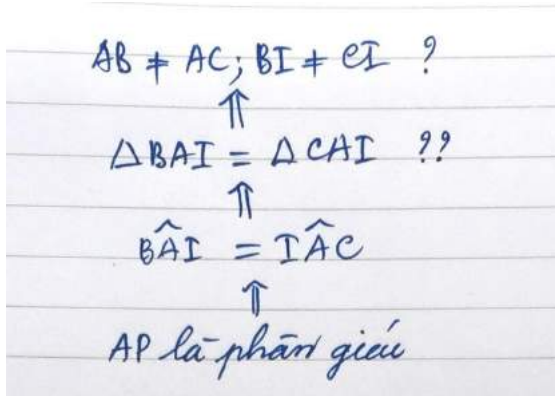 AB ≠ AC; BI ≠ CI ?
⇑
△BAI = △CAI ??
⇑
BÂI = IÂC
⇑
AP là phân giác